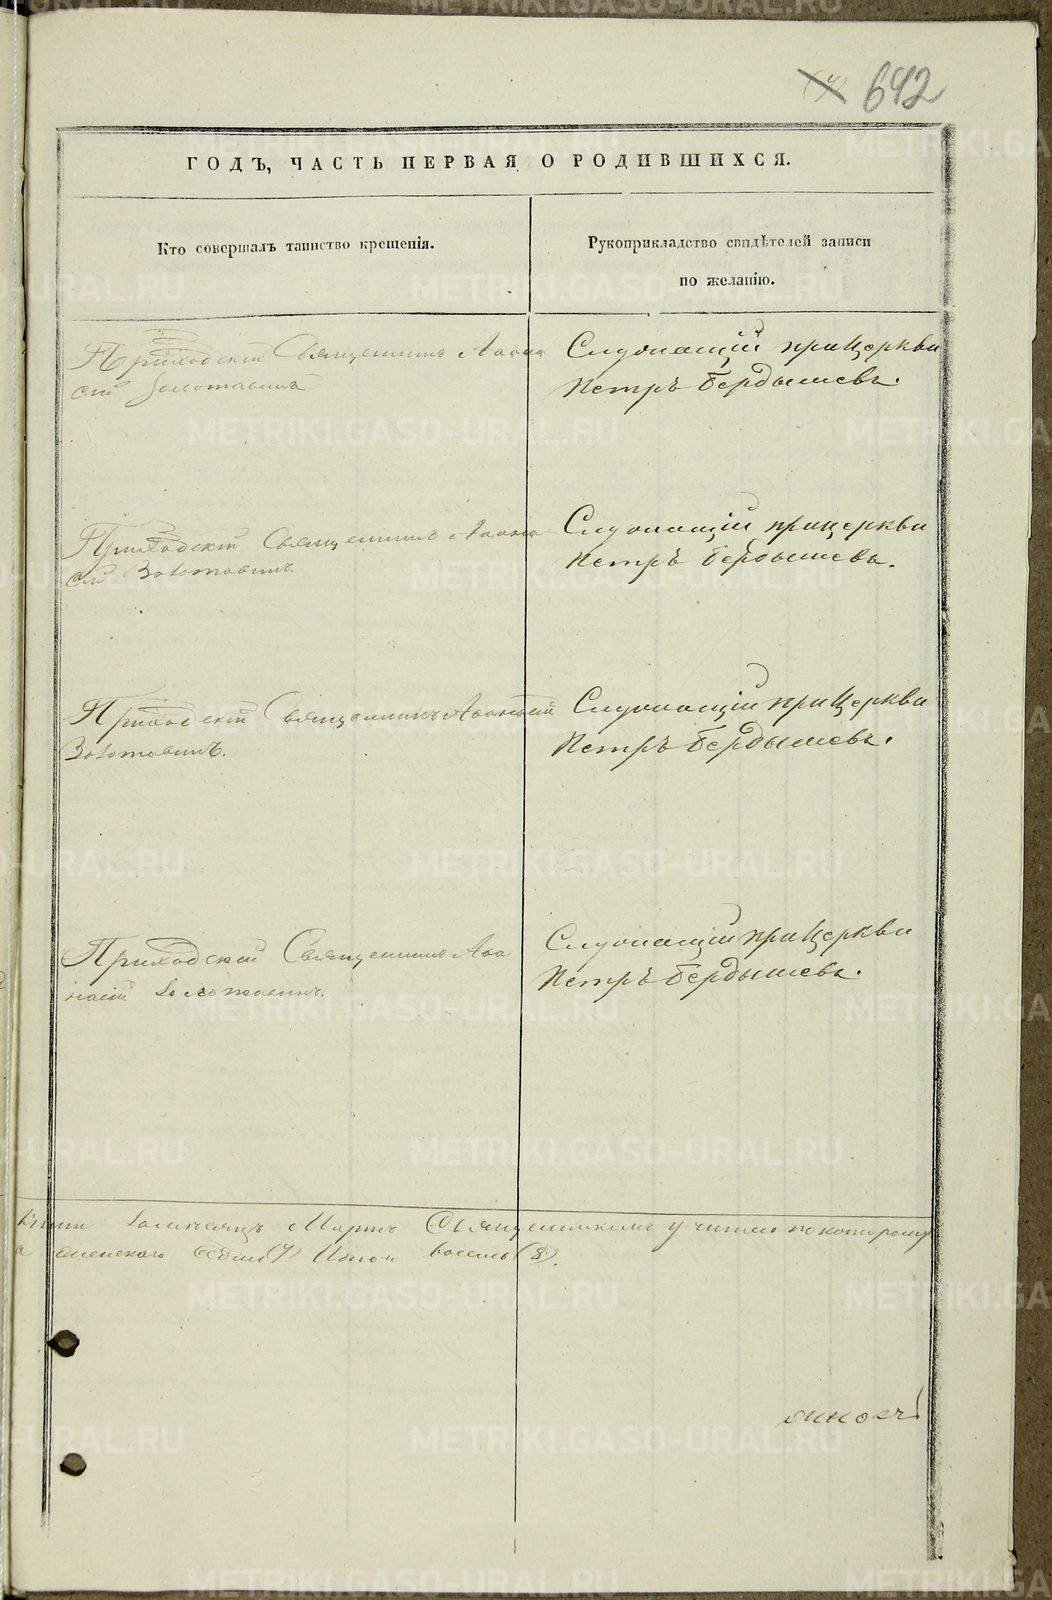 642
ГОДЪ, ЧАСТЬ ПЕРВАЯ О РОДИВШИХСЯ.
Кто совершалъ таинство крещенія.
Рукоприкладство свидѣтелей записи
по желанію.
Приходскій Священникъ Афана
сій Золотавинъ
Служащій при церкви
Петръ Бердышевъ.
Приходскій Священникъ Афана
сій Золотавинъ.
Служащій при церкви
Петръ Бердышевъ.
Приходскій Священникъ Афанасій
Золотавинъ.
Служащій при церкви
Петръ Бердышевъ.
Приходскій Священникъ Афа
насій Золотавинъ.
Служащій при церкви
Петръ Бердышевъ.
Мартъ Священникомъ по которому
женскаго Седмь (7) восемь (8).
METRIKI.GASO-URAL.RU